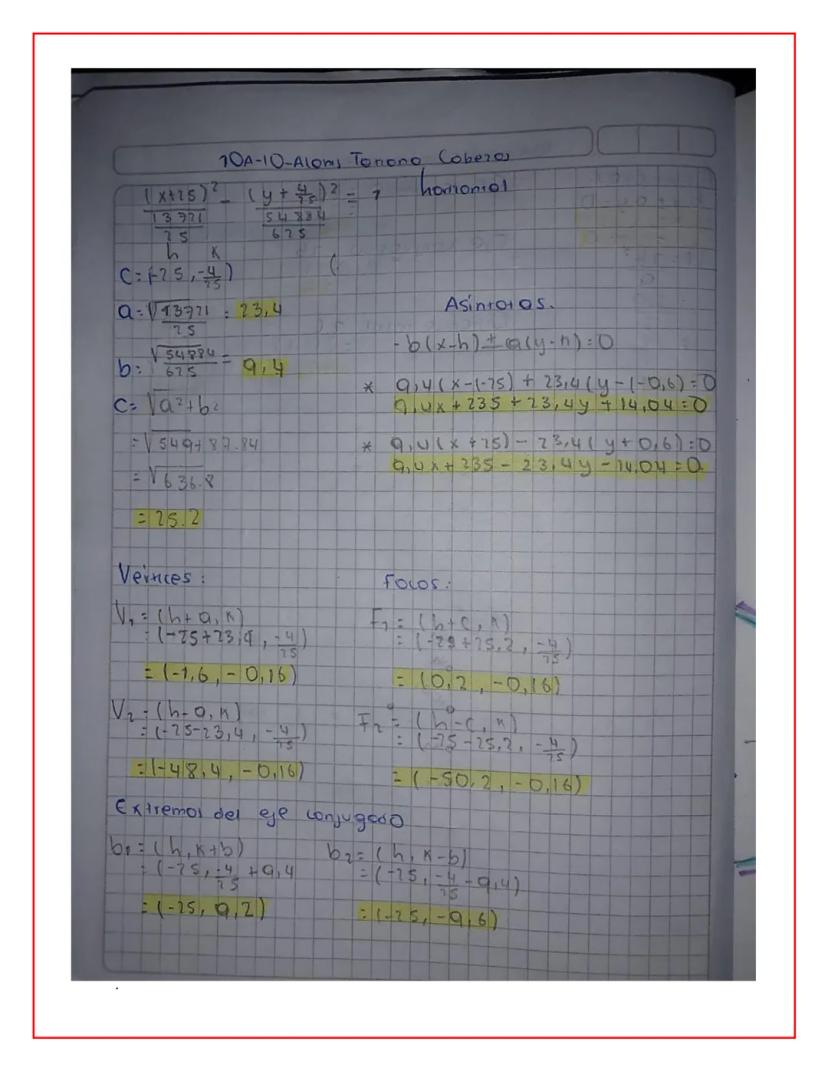 10A-10-Alons Tonono Cobezos
(x+25)² / (13721/25) - (y+4/25)² / (54884/625) = 1 horizontal
h k
C=(-25,-4/25)
a=√13721/25 = 23,4
b=√54884/625 = 9,4
C=√a²+b²
=√549+87.84
=√636.8
=25.2
Asíntotas.
-b(x-h)±a(y-k)=0
* 9,4(x-(-25)+23,4(y-(-0,6)=0
9,4x+235+23,4y+14,04=0
* 9,4(x+25)-23,4(y+0,6)=0
9,4x+235-23,4y-14,04=0
Vértices:
V₁=(h+a,k)
=(-25+23,4,-4/25)
=(-1,6,-0,16)
V₂=(h-a,k)
=(-25-23,4,-4/25)
=(-48,4,-0,16)
Focos:
F₁=(h+c,k)
=(-25+25.2,-4/25)
=(0,2,-0,16)
F₂=(h-c,k)
=(-25-25,2,-4/25)
=(-50,2,-0,16)
Extremos del eje conjugado
b₁=(h,k+b)
=(-25,-4/25+9,4
=(-25,9,2)
b₂=(h,k-b)
=(-25,-4/25-9,4)
=(-25,-9,6)